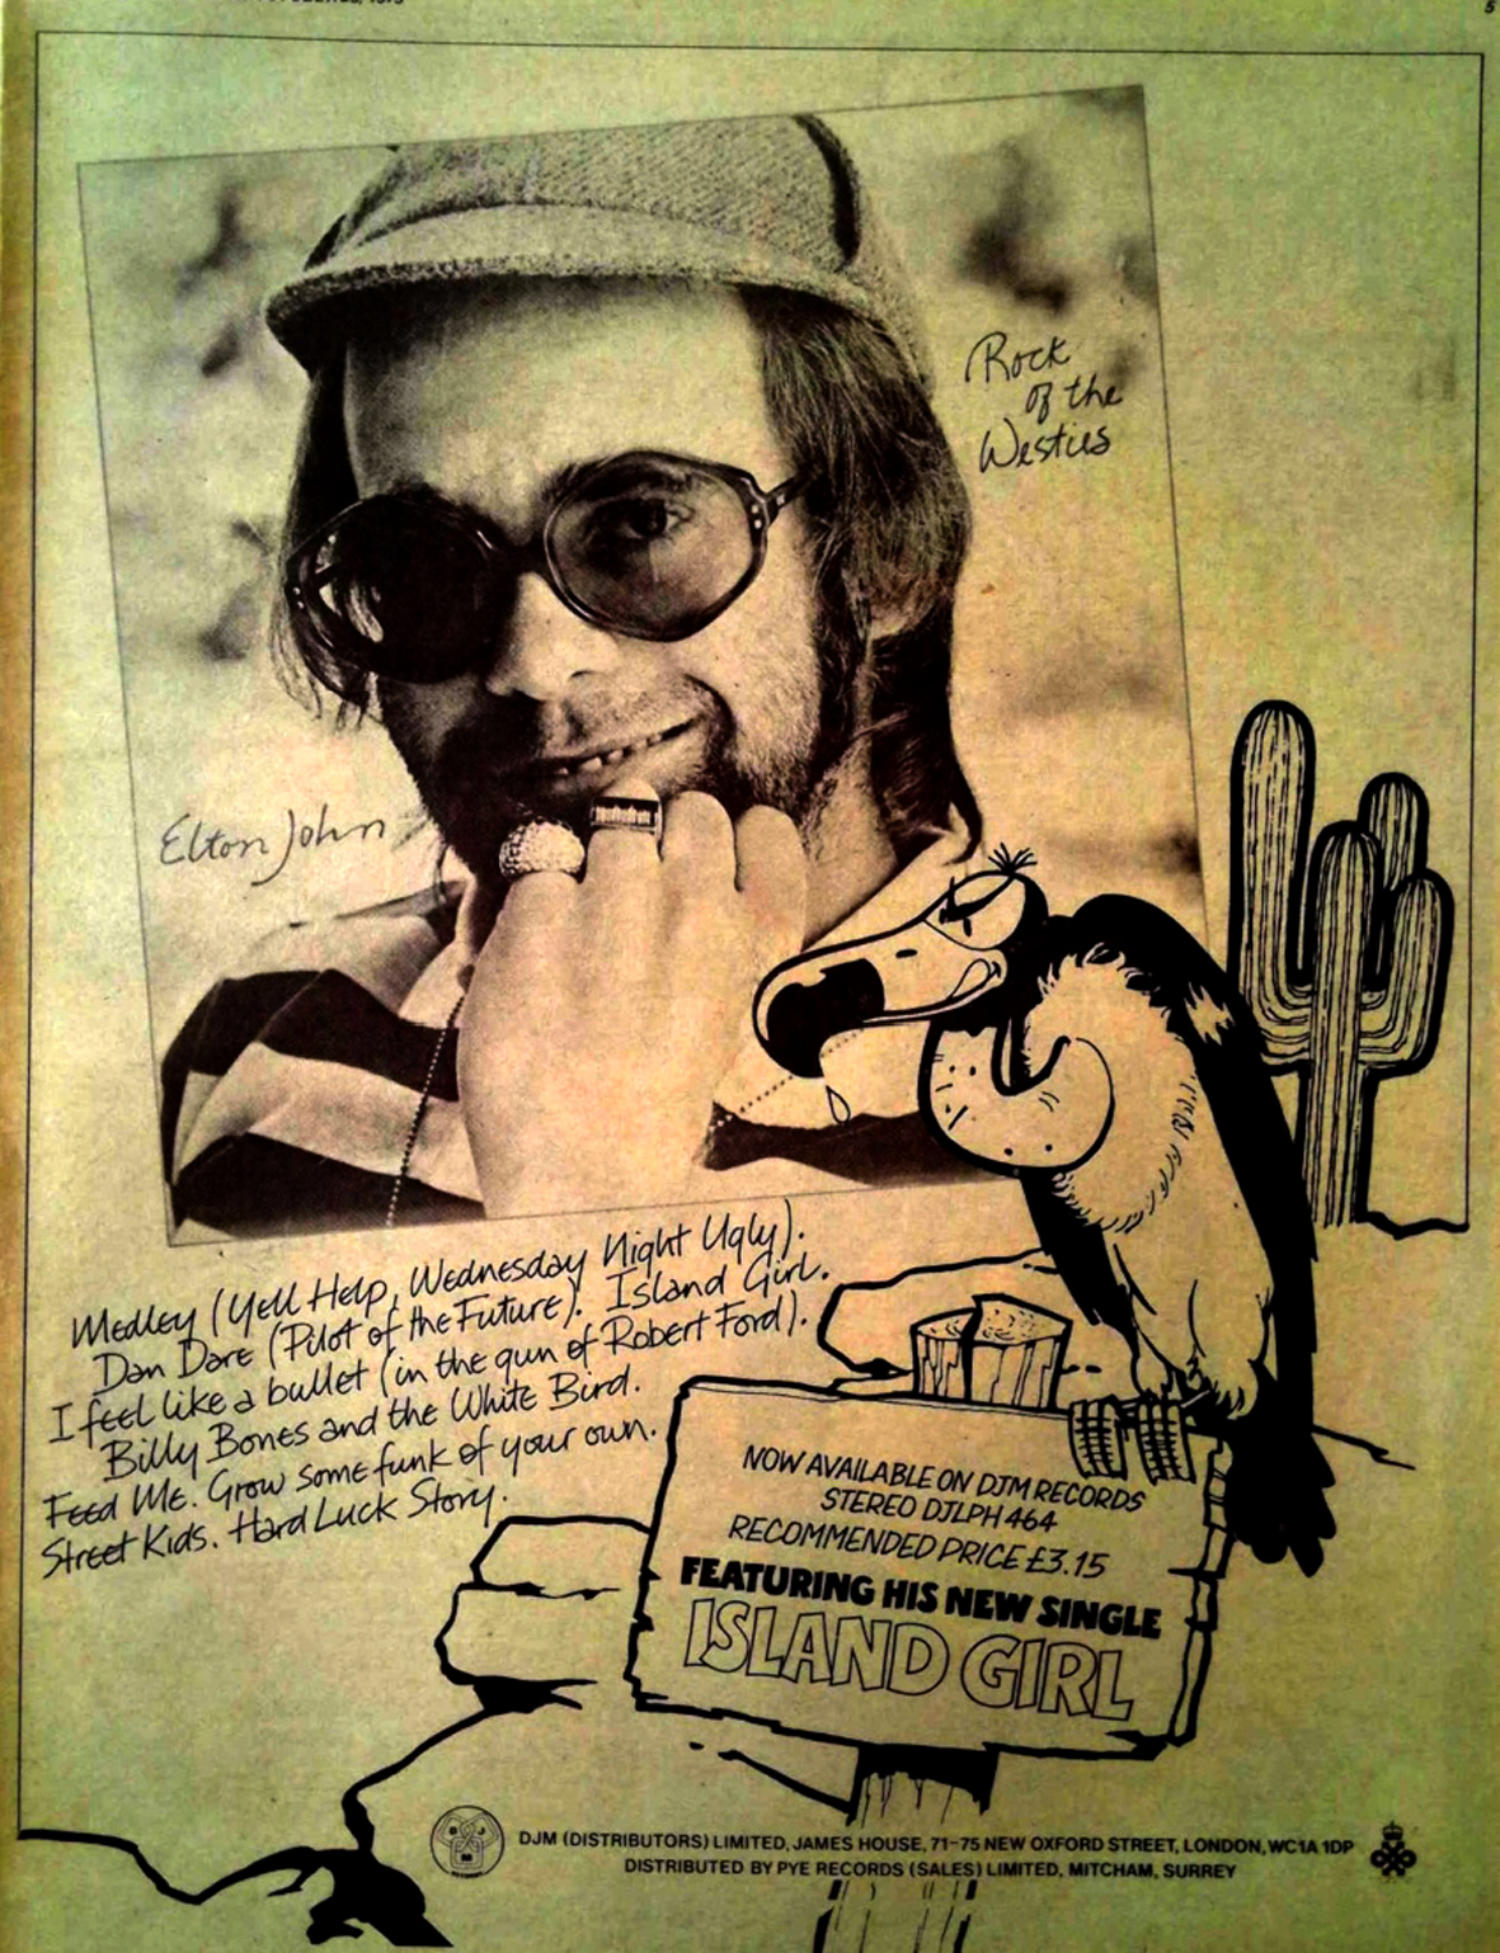 1975
5
Rock
of the
Westies
Elton John
Medley (Yell Help, Wednesday Night Ugly).
Dan Dare (Pilot of the Future). Island Girl.
I feel like a bullet (in the gun of Robert Ford).
Billy Bones and the White Bird.
Feed Me. Grow some funk of your own.
Street Kids. Hard Luck Story.
NOW AVAILABLE ON DJM RECORDS
STEREO DJLPH 464
RECOMMENDED PRICE £3.15
FEATURING HIS NEW SINGLE
ISLAND GIRL
DJM (DISTRIBUTORS) LIMITED, JAMES HOUSE, 71-75 NEW OXFORD STREET, LONDON, WC1A 1DP
DISTRIBUTED BY PYE RECORDS (SALES) LIMITED, MITCHAM, SURREY